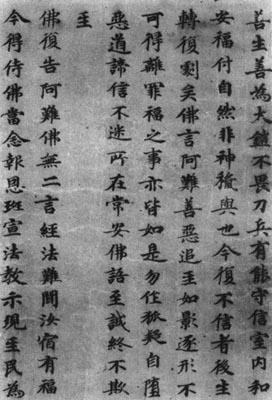 善生善為大鎧不畏刀兵有能守信室内和
安福付自然非神授與也今復不信者後生
轉復劇矣佛言阿難善惡追主如影逐形不
可得離罪福之事亦皆如是勿住狐疑自墮
惡道諦信不迷所在常安佛語至誠終不欺
主
佛復告阿難佛無二言經法難聞汝宿有福
今得侍佛當念報恩班宣法教示現主民為